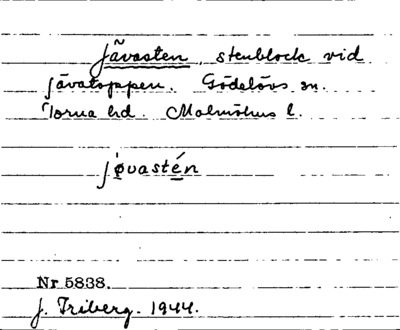 Jåvasten, stenblock vid
jåvatoppen. Gödelövs sn.
Torna hd. Malmöhus l.
jøvastén
Nr 5838.
J. Friberg. 1944.